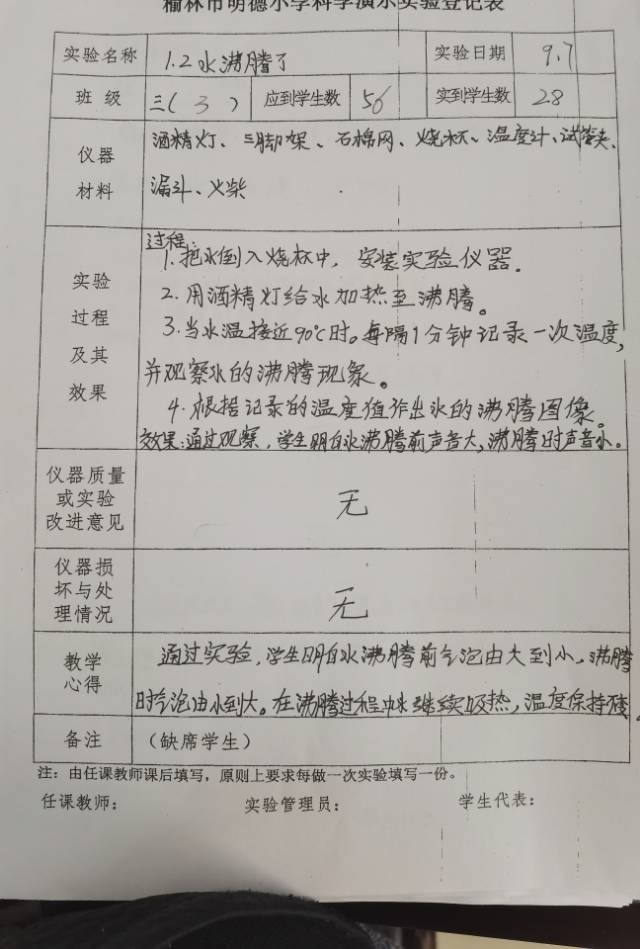 榆林市明德小学科学演示实验登记表
实验名称 1.2水沸腾了 实验日期 9.7
班 级 三(3) 应到学生数 56 实到学生数 28
仪器 材料 酒精灯、三脚架、石棉网、烧杯、温度计、试管夹、
漏斗、火柴
实验 过程 及其 效果 过程:
1.把水倒入烧杯中,安装实验仪器.
2.用酒精灯给水加热至沸腾。
3.当水温接近90℃时。每隔1分钟记录一次温度,
并观察水的沸腾现象。
4.根据记录的温度值作出水的沸腾图像。
效果:通过观察,学生明白水沸腾前声音大,沸腾时声音小。
仪器质量
或实验
改进意见 无
仪器损
坏与处
理情况 无
教学 心得 通过实验,学生明白水沸腾前气泡由大到小,沸腾
时气泡由小到大。在沸腾过程中水继续吸热,温度保持不变。
备注 (缺席学生)
注:由任课教师课后填写,原则上要求每做一次实验填写一份。
任课教师: 实验管理员: 学生代表: